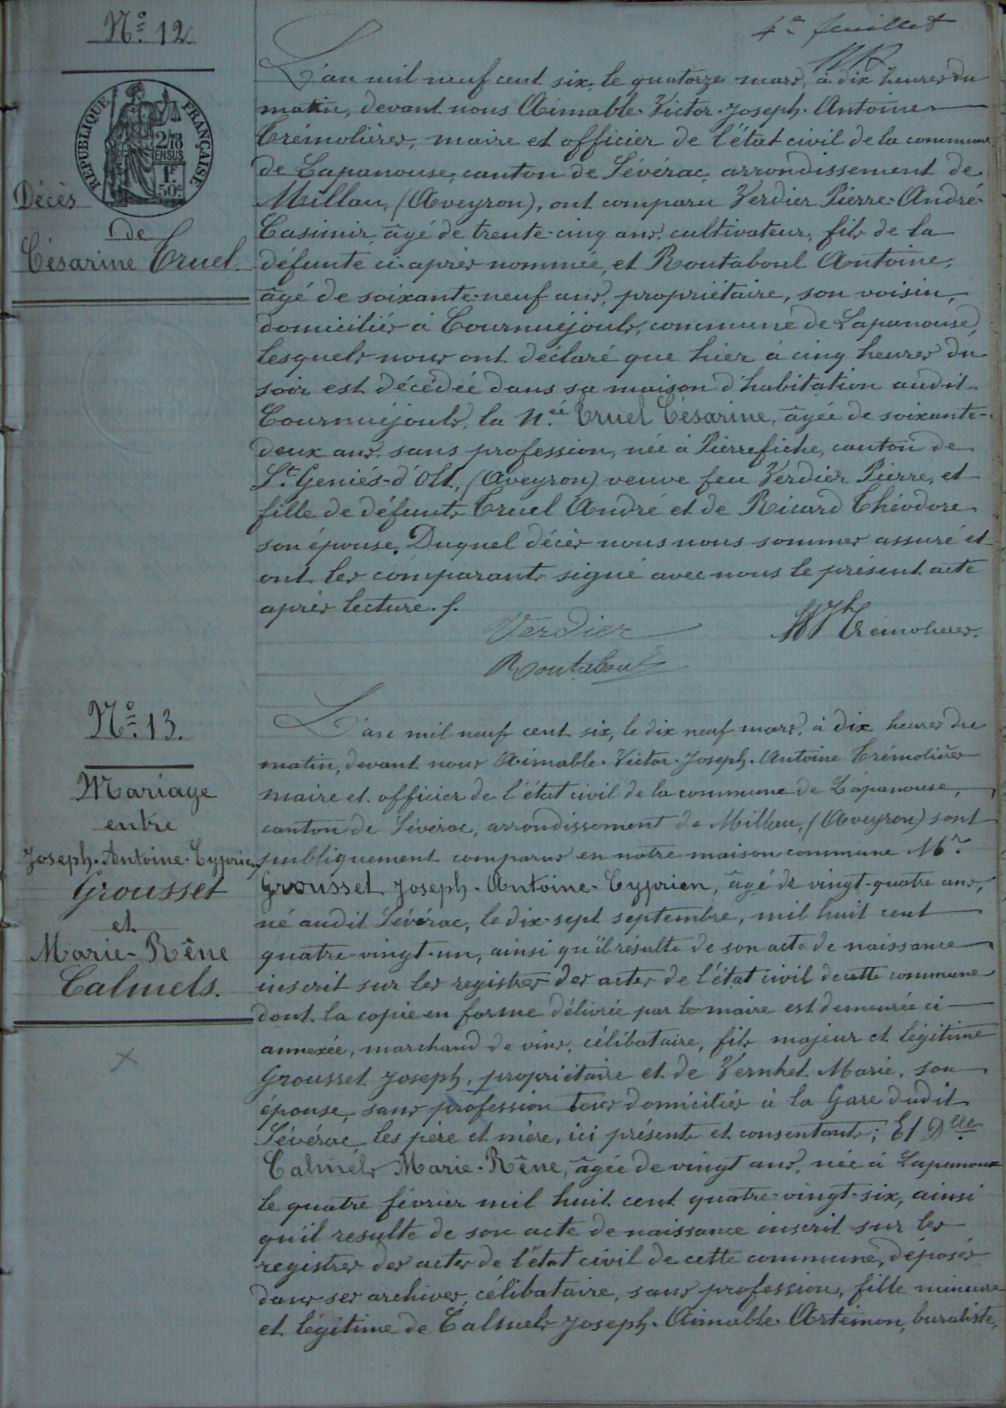 4e feuillet
N° 12.
RÉPUBLIQUE FRANÇAISE
2/10 EN SUS
1F 50c
Décès
de
Césarine Cruel.
L'an mil neuf cent six, le quatorze mars, à dix heures du
matin, devant nous Aimable-Victor-Joseph-Antoine
Crémolières, maire et officier de l'état civil de la commune
de Lapanouse, canton de Sévérac, arrondissement de
Millau, (Aveyron), ont comparu Verdier Pierre-André-
Casimir, âgé de trente-cinq ans, cultivateur, fils de la
défunte ci-après nommée, et Routaboul Antoine,
âgé de soixante-neuf ans, propriétaire, son voisin,
domiciliés à Cournuéjouls, commune de Lapanouse,
lesquels nous ont déclaré que hier à cinq heures du
soir est décédée dans sa maison d'habitation audit
Cournuéjouls, la N.ée Cruel Césarine, âgée de soixante-
deux ans, sans profession, née à Pierrefiche, canton de
St Geniés-d'Olt, (Aveyron) veuve feu Verdier Pierre, et
fille de défunts Cruel André et de Ricard Théodore
son épouse. Duquel décès nous nous sommes assuré et
ont les comparants signé avec nous le présent acte
après lecture.
Verdier
Crémolières.
Routaboul
N° 13.
Mariage
entre
Joseph-Antoine-Cyprien
Grousset
et
Marie-Rêne
Calmels.
L'an mil neuf cent six, le dix neuf mars, à dix heures du
matin, devant nous Aimable-Victor-Joseph-Antoine Crémolières
maire et officier de l'état civil de la commune de Lapanouse,
canton de Sévérac, arrondissement de Millau, (Aveyron) sont
publiquement comparus en notre maison commune Mr
Grousset Joseph-Antoine-Cyprien, âgé de vingt-quatre ans,
né audit Sévérac, le dix-sept septembre, mil huit cent
quatre-vingt-un, ainsi qu'il résulte de son acte de naissance
inscrit sur les registres des actes de l'état civil de cette commune
dont la copie en forme délivrée par le maire est demeurée ci-
annexée, marchand de vins, célibataire, fils majeur et légitime
Grousset Joseph, propriétaire et de Vernhet Marie, son
épouse, sans profession tous domiciliés à la Gare dudit
Sévérac, les père et mère, ici présents et consentants; Et Dlle
Calmels Marie-Rêne, âgée de vingt ans, née à Lapanouse
le quatre février mil huit cent quatre-vingt-six, ainsi
qu'il resulte de son acte de naissance inscrit sur les
registres des actes de l'état civil de cette commune, déposés
dans ses archives, célibataire, sans profession, fille mineure
et légitime de Calmels Joseph-Aimable-Artémon, buraliste,